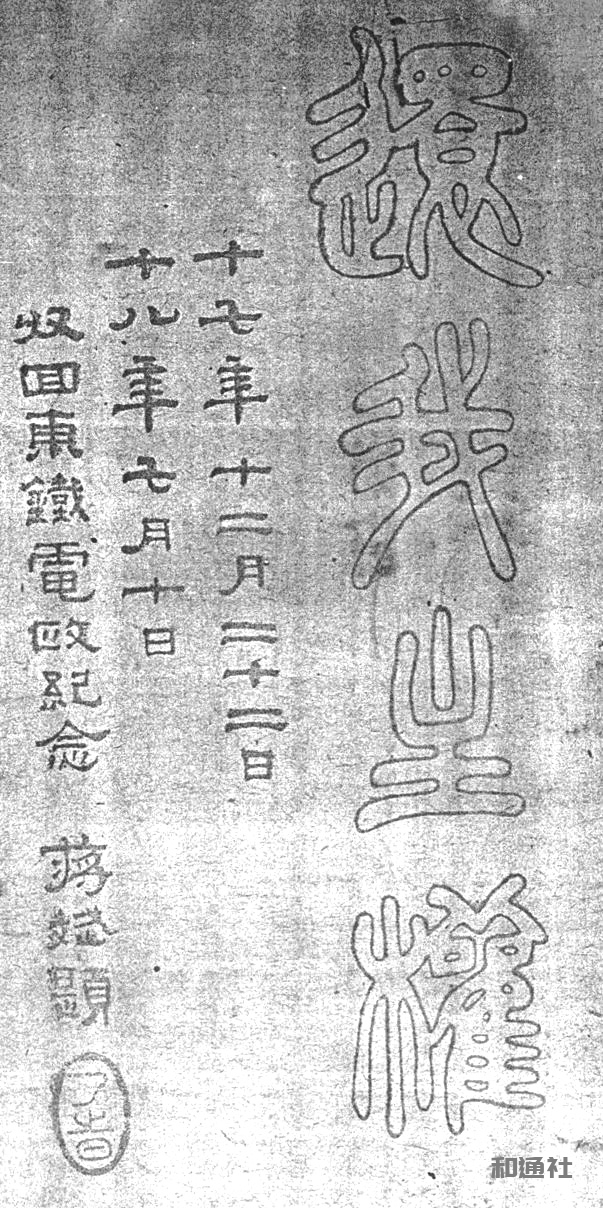 還我主權
十七年十二月二十二日
十八年七月十日
收回東鐵電政紀念 蔣斌題
和通社